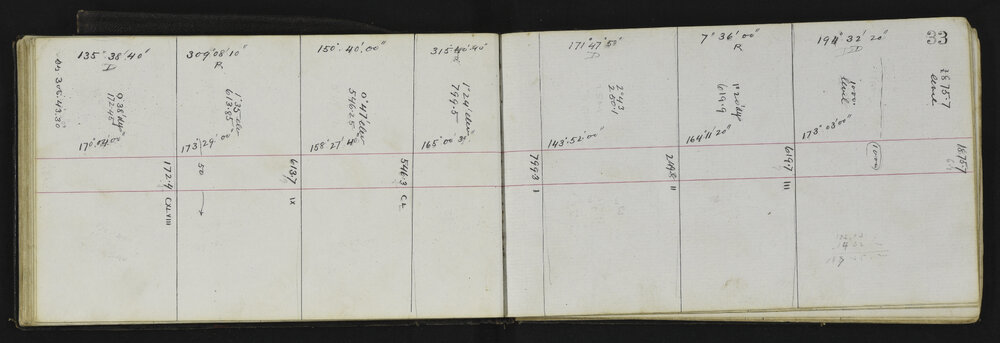 33
135° 38' 40"
D
on 305.43.30
0°38'
172.45
170° 04' 00"
172.9 CXLVIII
309° 08' 10"
R
1°35' elev
613.85
173° 29' 00"
50
613.7 IX
150° 40' 00"
0°47' elev
546.25
158° 27' 40"
546.3 CL
315° 40' 40"
R
1°24' elev
799.5
165° 00' 30"
799.3 I
171° 47' 50"
D
2°43
250.1
143° 52' 00"
249.8 II
7° 36' 00"
R
619.9
164° 11' 20"
619.7 III
194° 32' 20"
D
1000
level
173° 03' 00"
1000
1875.7
level
1875.7